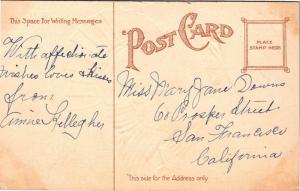 This Space For Writing Messages
POST CARD
PLACE
STAMP HERE
With affectionate
wishes love & kisses
from
Kellegher
Miss Mary Jane Downs
60 Prosper Street
San Francisco
California
This side for the Address only